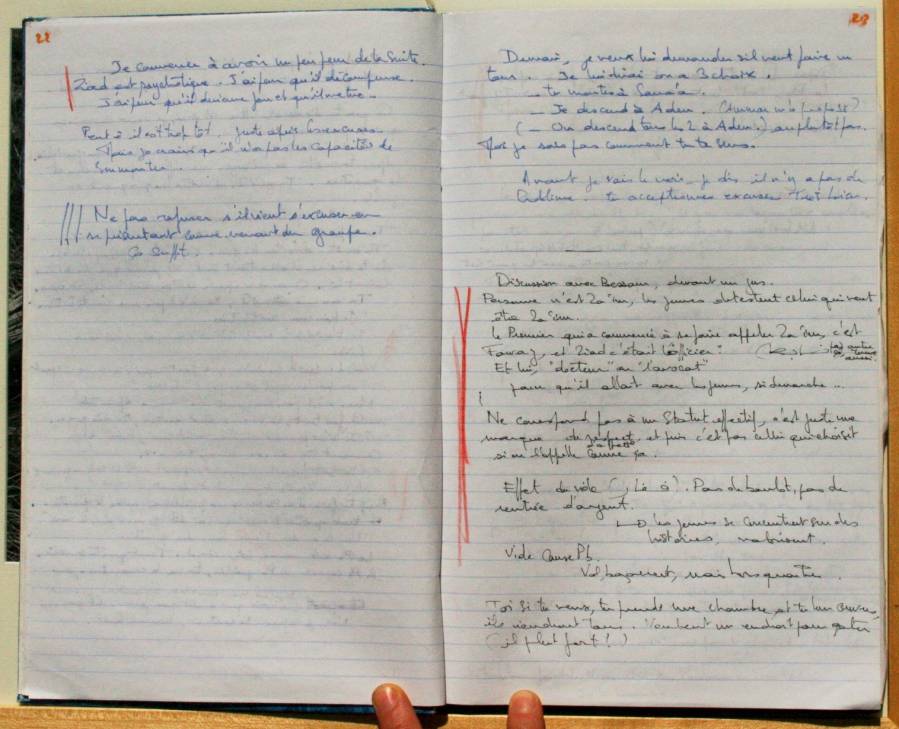 22
Je commence à avoir un peu peur de la suite.
Ziad est psychotique. J'ai peur qu'il décompense.
J'ai peur qu'il devienne fou et qu'il me tue.
Peut ê il est trop tôt. Juste après les excuses.
Mais je crains qu'il n'a pas les capacités de
surmonter.
Ne pas refuser s'il vient s'excuser en
se présentant comme venant du groupe.
Ça suffit.
23
Demain, je veux lui demander s'il veut faire un
tour. Je lui dirai on a 3 choix.
- tu montes à Sana'a.
- Je descends à Aden. (Ammar m'a proposé)
(- On descend tous les 2 à Aden.) au plutôt pas.
Moi je sais pas comment tu te sens.
Avant je vais le voir, je dis il n'y a pas de
problème. tu acceptes mes excuses
Discussion avec Bassam, devant un jus.
Personne n'est Za'im, les jeunes détestent celui qui veut
être Za'im.
Le Premier qui a commencé à se faire appeler Za'im, c'est
Fawaz, et Ziad c'était "l'officier"
Et lui, "docteur" ou "l'avocat"
parce qu'il allait avec les jeunes, sa démarche...
Ne correspond pas à un Statut effectif, c'est juste une
marque de respect, et puis c'est pas celui qui choisit
si on l'appelle comme ça.
Effet du vide. Pas de boulot, pas de
rentrée d'argent.
→ les jeunes se concentrent sur des
histoires,
Vide cause Pb.
Vol, mais hors quartier.
Toi si tu veux, tu prends une chambre et tu leur ouvres,
ils viendront tous. Veulent un endroit pour
(il pleut fort!)